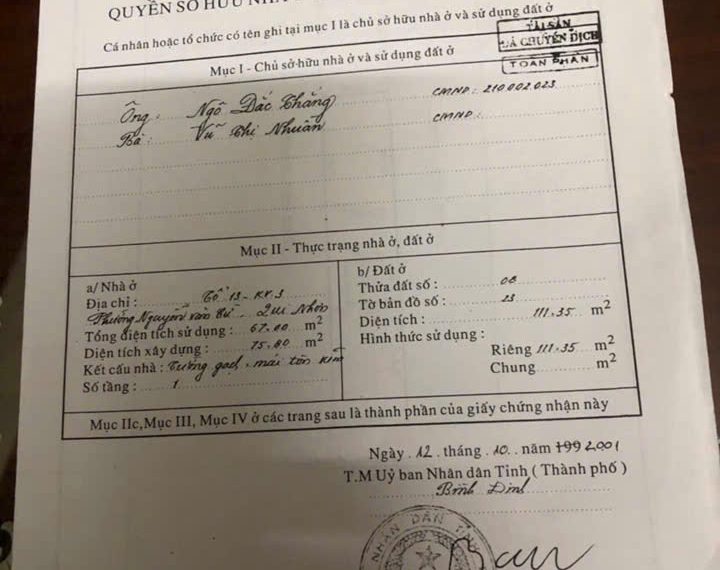 QUYỀN SỞ HỮU NHÀ
Cá nhân hoặc tổ chức có tên ghi tại mục I là chủ sở hữu nhà ở và sử dụng đất ở
TÀI SẢN
ĐÃ CHUYỂN DỊCH
TOÀN PHẦN
Mục I - Chủ sở hữu nhà ở và sử dụng đất ở
Ông : Ngô Đắc Thắng CMND : 210.002.023
Bà : Vũ Thị Nhuần CMND :
Mục II - Thực trạng nhà ở, đất ở
a/ Nhà ở
Địa chỉ : Tổ 13 - KV.3
Phường Nguyễn Văn Cừ - Qui Nhơn
Tổng diện tích sử dụng : 67.00 m2
Diện tích xây dựng : 75.80 m2
Kết cấu nhà : Tường gạch, mái tôn
Số tầng : 1
b/ Đất ở
Thửa đất số : 08
Tờ bản đồ số : 23
Diện tích : 111.35 m2
Hình thức sử dụng :
Riêng 111.35 m2
Chung m2
Mục IIc, Mục III, Mục IV ở các trang sau là thành phần của giấy chứng nhận này
Ngày 12 tháng 10 năm 199 2001
T.M Uỷ ban Nhân dân Tỉnh ( Thành phố )
Bình Định
NHÂN DÂN TỈNH